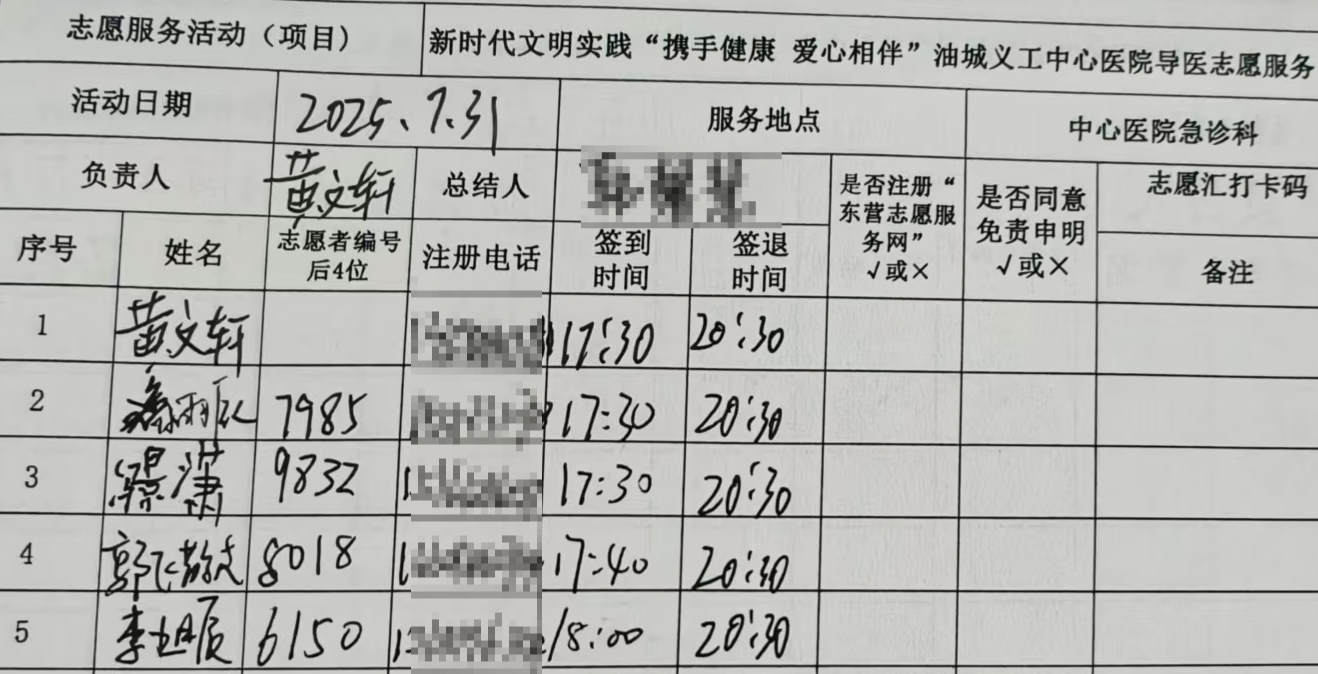 志愿服务活动（项目） 新时代文明实践“携手健康 爱心相伴”油城义工中心医院导医志愿服务
活动日期 2025.7.31 服务地点 中心医院急诊科
负责人 黄文轩 总结人 是否注册“东营志愿服务网”√或× 是否同意免责申明√或× 志愿汇打卡码
序号 姓名 志愿者编号后4位 注册电话 签到时间 签退时间 备注
1 黄文轩 17:30 20:30
2 7985 17:30 20:30
3 9832 17:30 20:30
4 郭 8018 17:40 20:30
5 李 6150 18:00 20:30